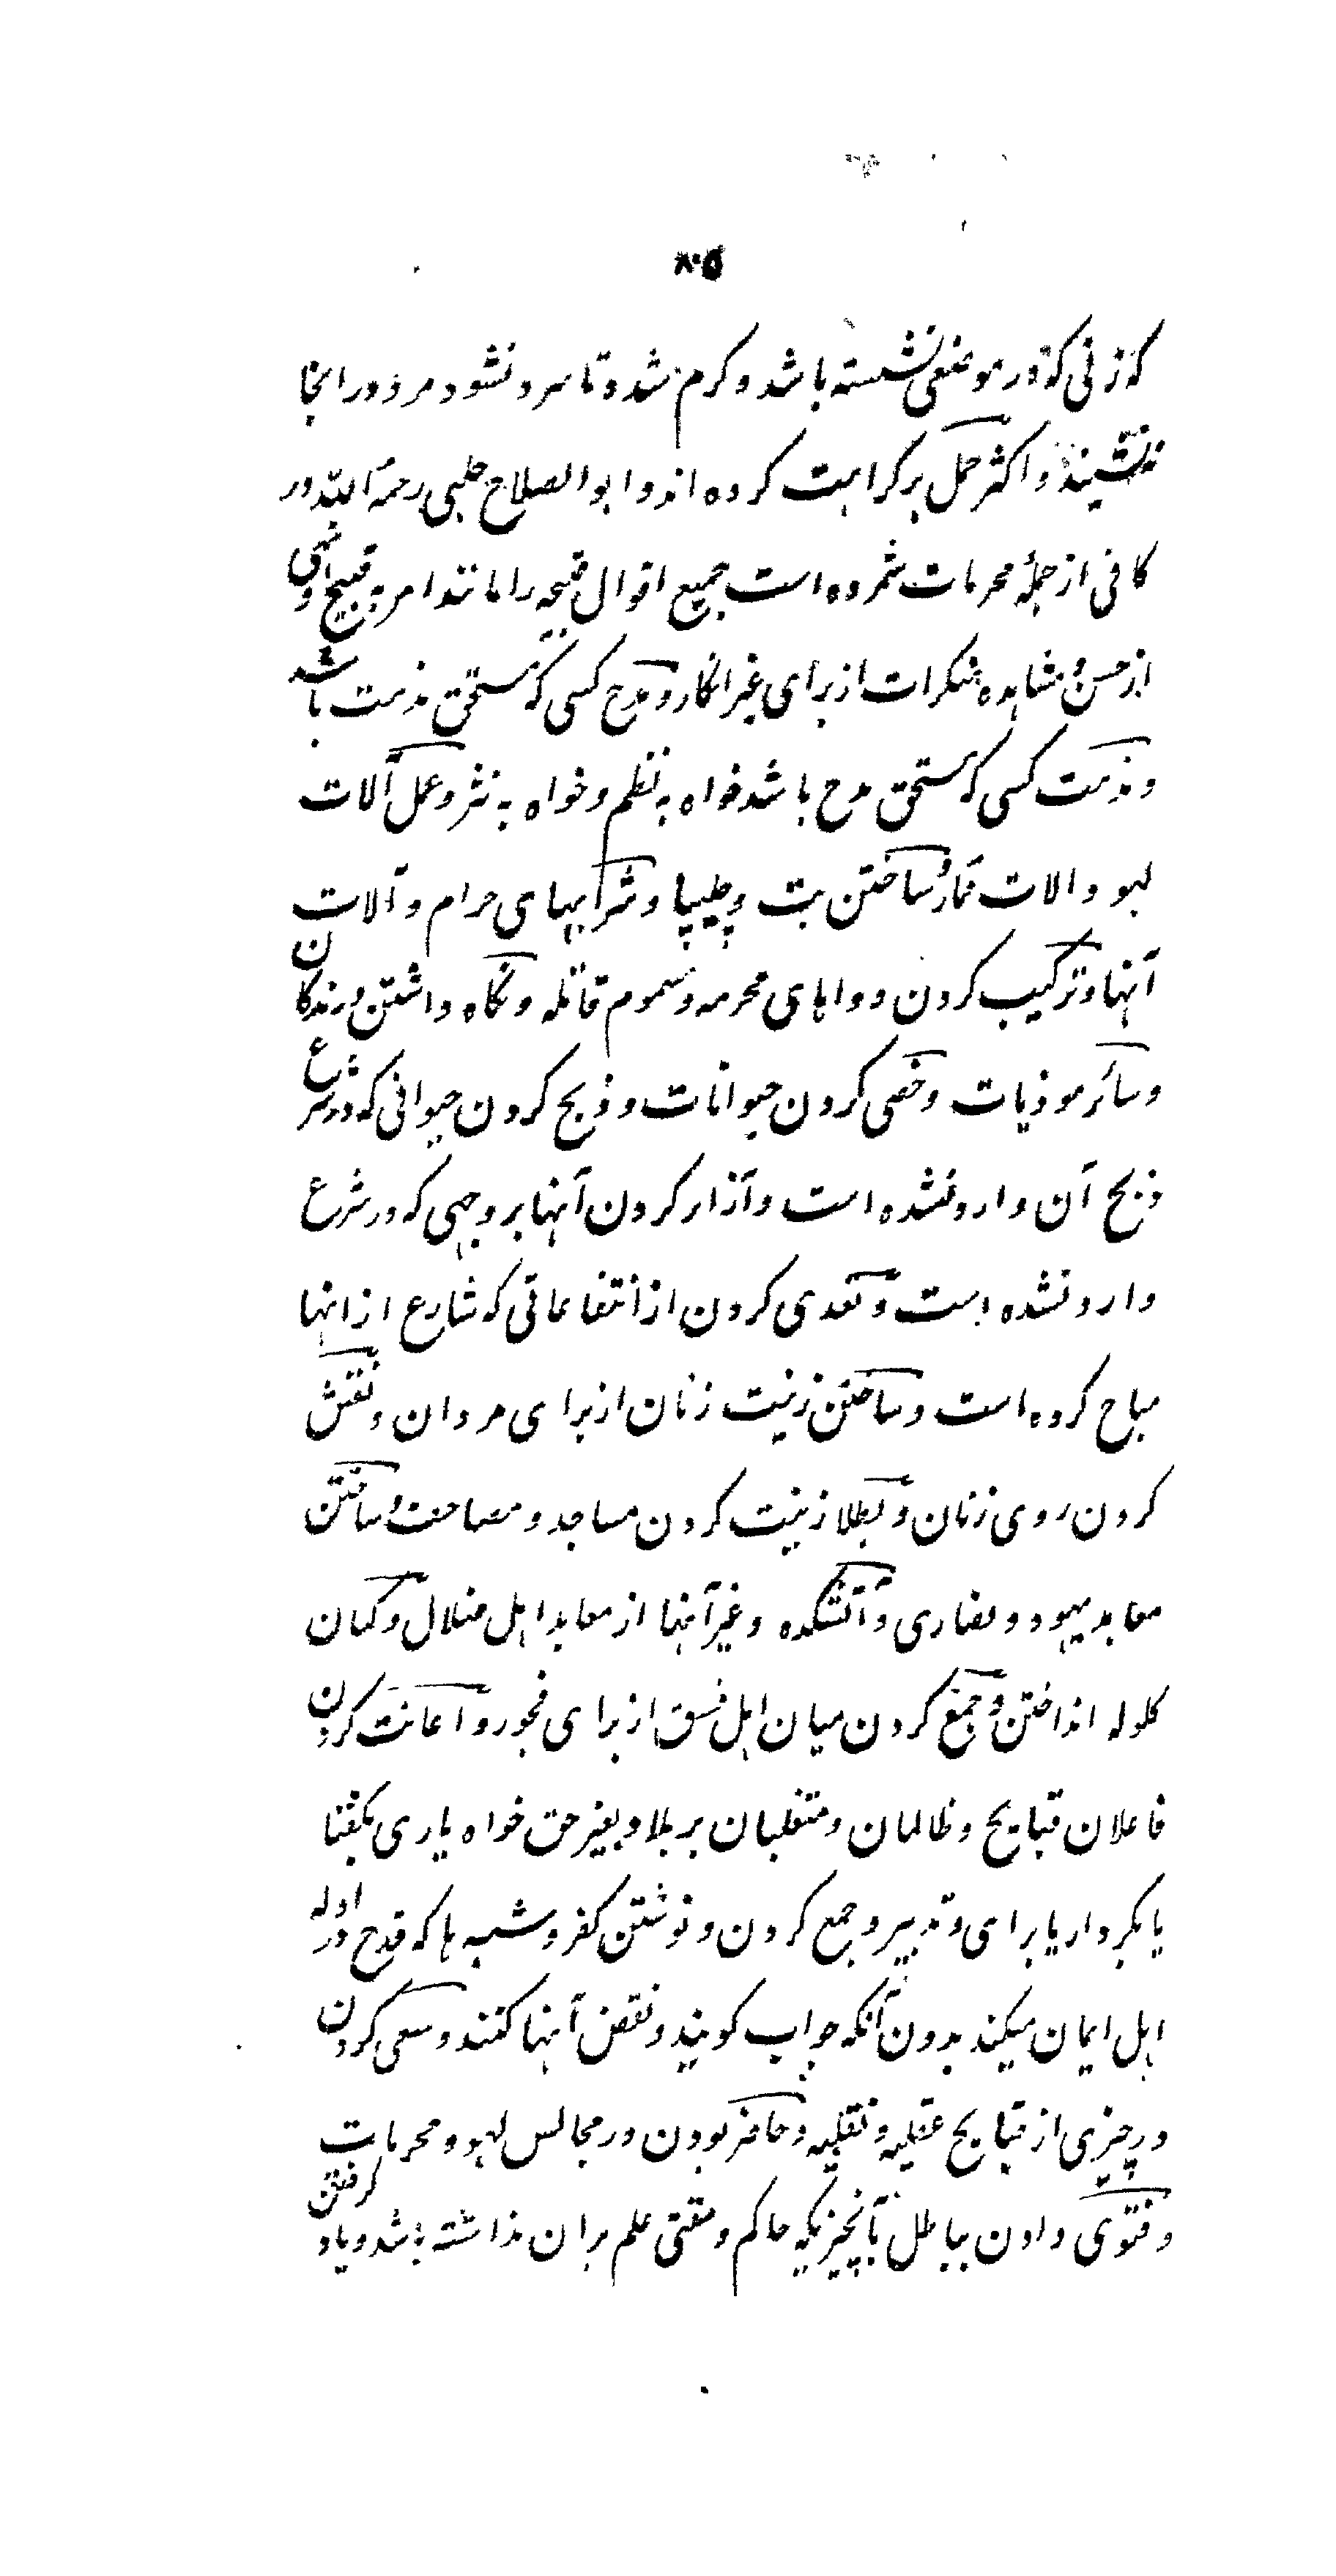 ۸۰۵
که زنی که در موضعی نشسته باشد و کرم شد و تا سرد نشود مرد در انجا
ننشیند و اکثر حمل بر کراهت کرده اند و ابو الصلاح حلبی رحمه الله در
کافی از جملهٔ محرمات شمرده است جمیع اقوال قبیحه را مانند امر به قبیح و نهی
از حسن و مشاهده منکرات از برای غیر انکار و مدح کسی که مستحق مذمت باشد
و مذمت کسی که مستحق مدح باشد خواه به نظم و خواه به نثر و عمل آلات
لهو و الات قمار و ساختن بت و چلیپا و شرابهای حرام و آلات
آنها و ترکیب کردن دواهای محرمه و سموم قاتله و نکاه داشتن درندکان
و سائر موذیات و خصی کردن حیوانات و ذبح کردن حیوانی که در شرع
ذبح آن وارد نشده است و آزار کردن آنها بر وجهی که در شرع
وارد نشده است و تعدی کردن از انتفاعاتی که شارع از انها
مباح کرده است و ساختن زینت زنان از برای مردان و نقش
کردن روی زنان و بطلا زینت کردن مساجد و مصاحف و ساختن
معابد یهود و نصاری و آتشکده و غیر آنها از معابد اهل ضلال و کمان
کلوله انداختن و جمع کردن میان اهل فسق از برای فجور و اعانت کردن
فاعلان قبایح و ظالمان و متغلبان بر بلاد بغیر حق خواه یاری بکفتا
یا بکردار یا برای و تدبیر و جمع کردن و نوشتن کفر و شبه ها که قدح در ادله
اهل ایمان میکند بدون آنکه جواب کویند و نقض آنها کنند و سعی کردن
در چیزی از قبایح عقلیه و نقلیه و حاضر بودن در مجالس لهو و محرمات
و فتوی دادن بباطل یا بآنچیزیکه حاکم و مفتی علم بران نداشته باشد و یاد کرفتن